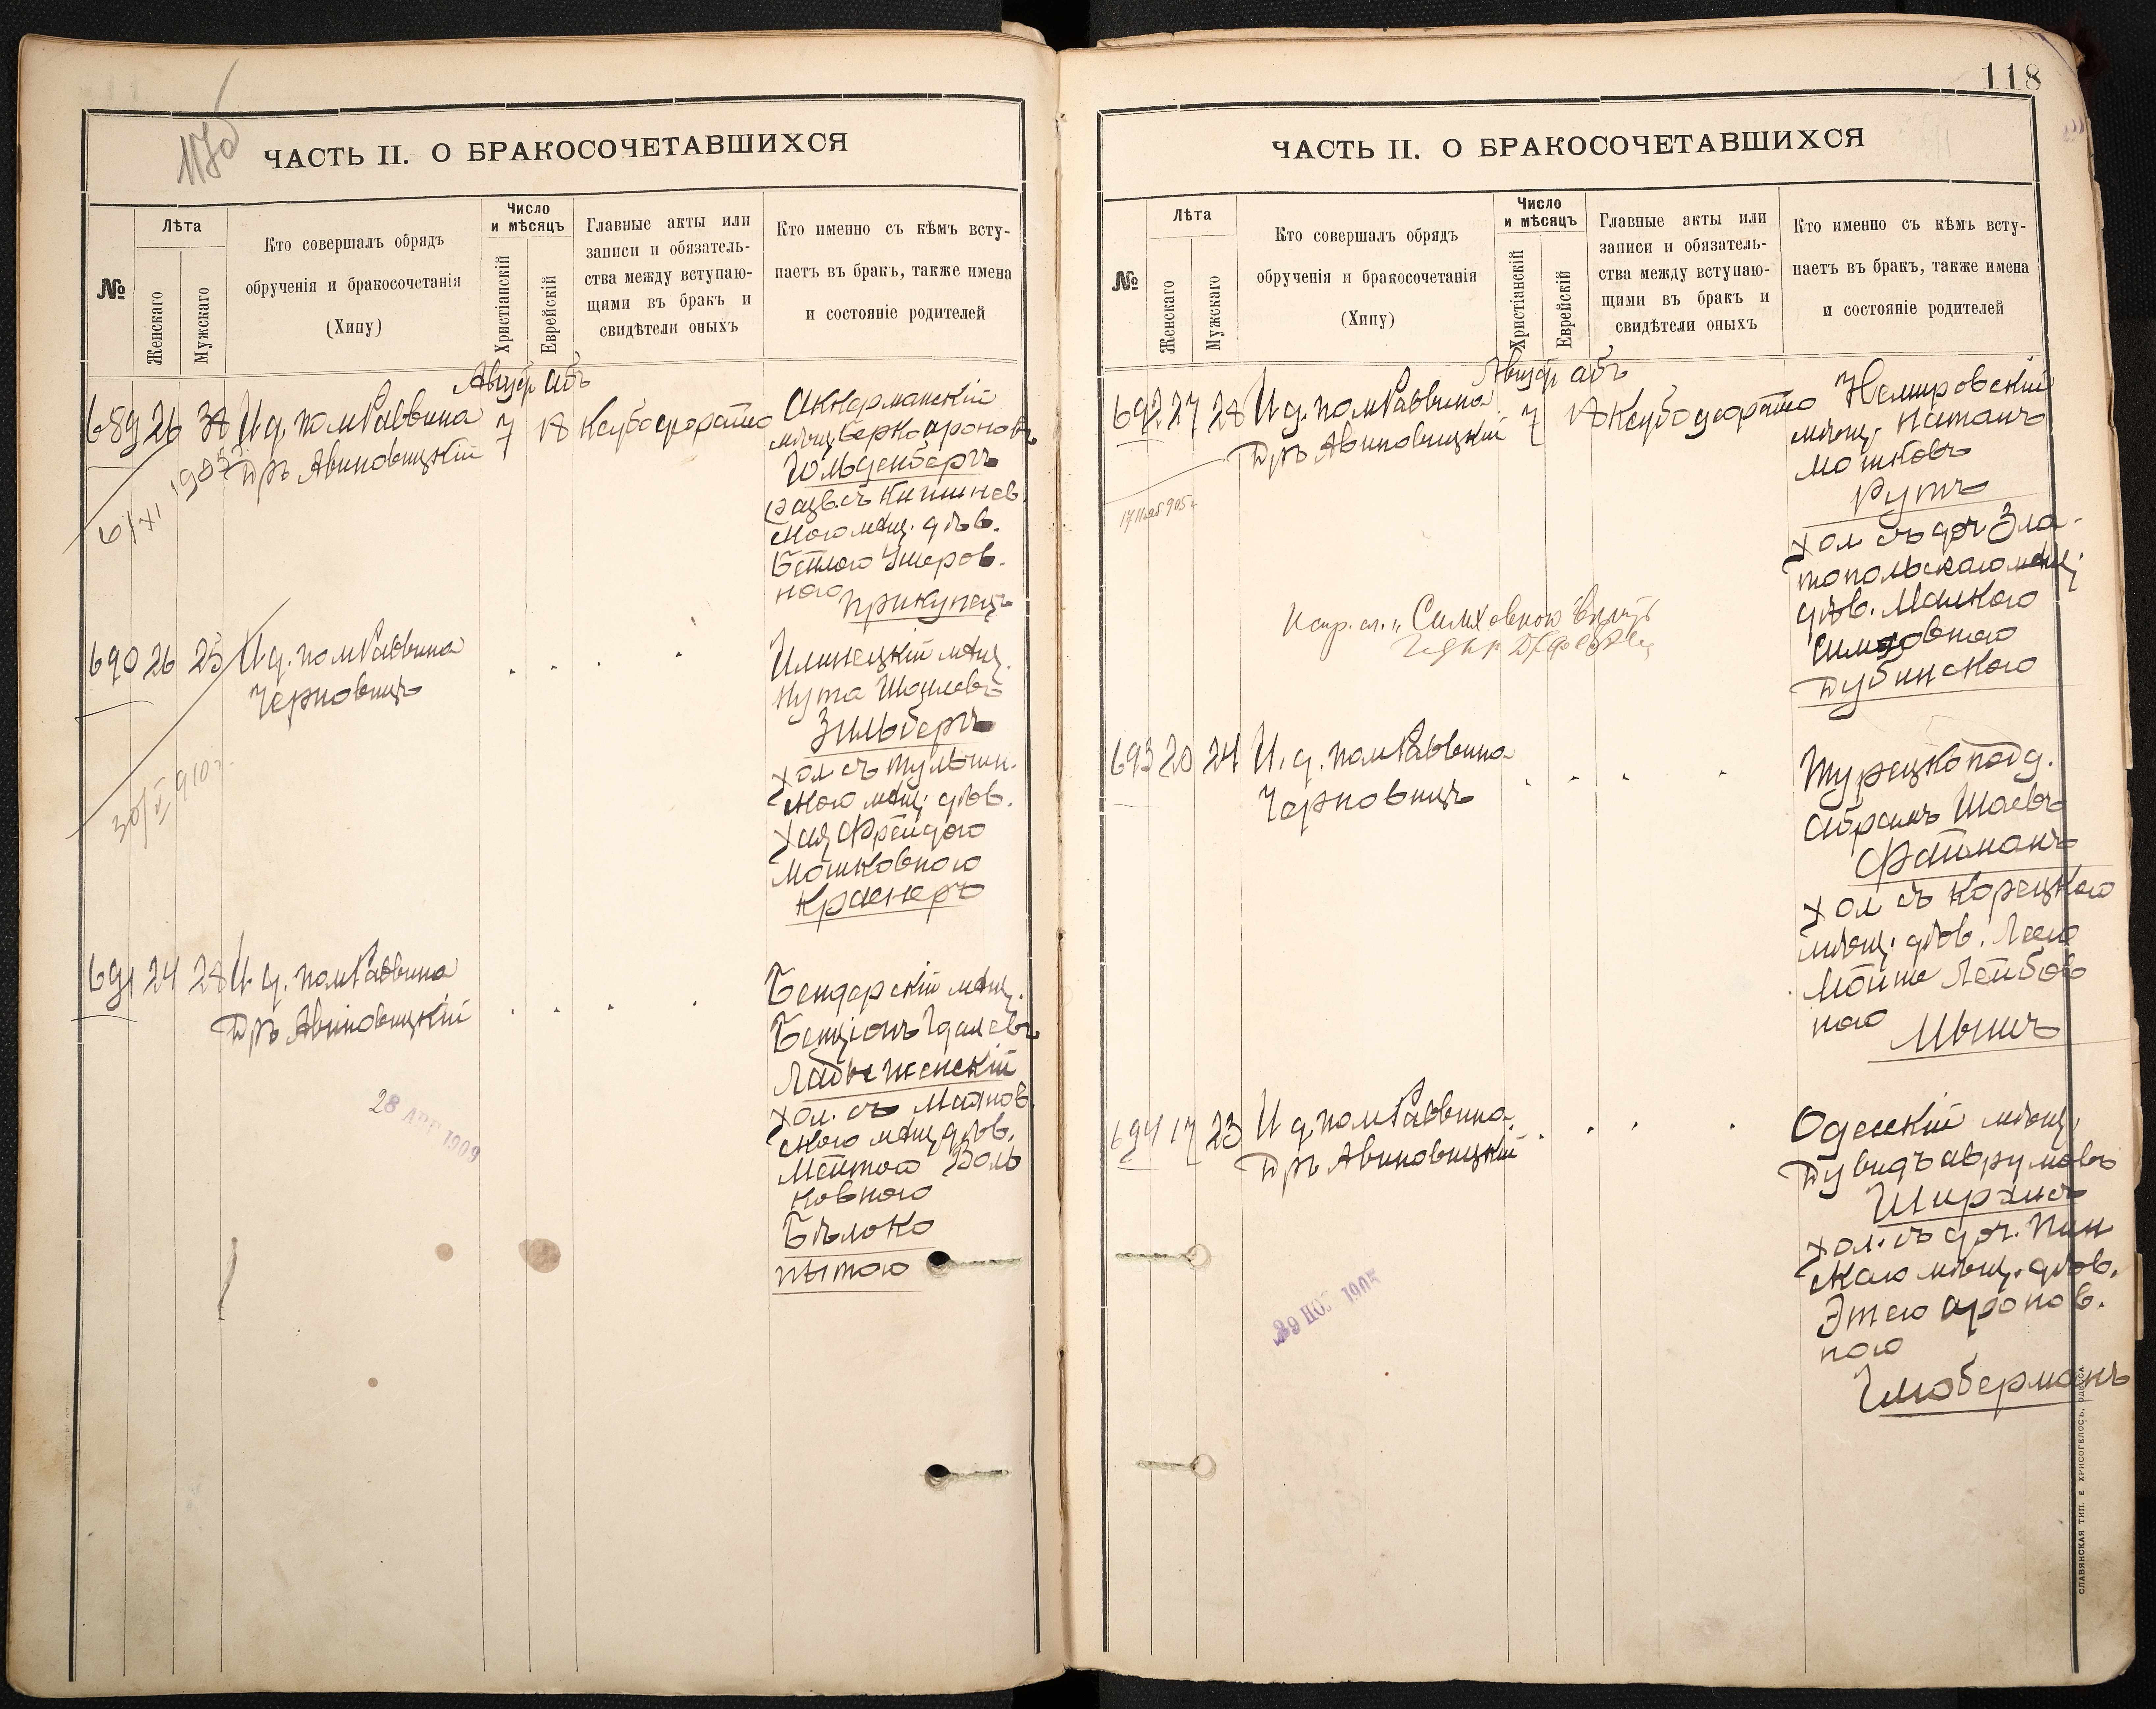 117об
ЧАСТЬ II. О БРАКОСОЧЕТАВШИХСЯ
№
Лѣта
Женскаго
Мужскаго
Кто совершалъ обрядъ
обрученія и бракосочетанія
(Хипу)
Число
и мѣсяцъ
Христіанскій
Еврейскій
Главные акты или
записи и обязатель-
ства между вступаю-
щими въ бракъ и
свидѣтели оныхъ
Кто именно съ кѣмъ всту-
паетъ въ бракъ, также имена
и состояніе родителей
Август абъ
689 26 И д. пом Раввина 7 18
Дръ Авиновицкій
Аккерманскій
мѣщ. Берко Ароновъ
Гольденбергъ
разв. съ Кишинев.
скою мѣщ. дѣв.
Бейлою Умеров.
ною
Прикупецъ
690 26 25 И д. пом Раввина
Черновицъ
Илинецкій мѣщ.
Нута Шоилевъ
Зильбергъ
хол съ Тульчин.
скою мѣщ. дѣв.
Хая Фрейдою
Мошковною
Краснеръ
30/V 910 г.
691 24 28 И д. пом Раввина
Дръ Авиновицкій
Бендерскій мѣщ.
Бенціонъ Гдалевъ
Ладыженскій
хол. съ Маянов.
скою мѣщ дѣв.
Мейтою Воль
ковною
Бѣлоко
пытою
28 АПР 1909
118
ЧАСТЬ II. О БРАКОСОЧЕТАВШИХСЯ
№
Лѣта
Женскаго
Мужскаго
Кто совершалъ обрядъ
обрученія и бракосочетанія
(Хипу)
Число
и мѣсяцъ
Христіанскій
Еврейскій
Главные акты или
записи и обязатель-
ства между вступаю-
щими въ бракъ и
свидѣтели оныхъ
Кто именно съ кѣмъ всту-
паетъ въ бракъ, также имена
и состояніе родителей
Август абъ
692 27 28 И д. пом Раввина 7 18
Дръ Авиновицкій
17 Нояб 905 г.
Немировскій
мѣщ. Натанъ
Мошковъ
Рутъ
хол съ доч Зла-
топольскаго мѣщ.
дѣв. Малкою
Симховною
Дубинскою
Испр. сл. „Симховною"
693 20 24 И. д. пом Раввина
Черновицъ
Турецкоподд.
Абрамъ Шаевъ
Файманъ
хол съ Корецкою
мѣщ. дѣв. Леею
Мойше Лейбов
ною
Мышъ
694 17 23 И д. пом Раввина
Дръ Авиновицкій
Одесскій мѣщ.
Дувидъ Аврумовъ
хол. съ доч. Пин
скаго мѣщ. дѣв.
Этею Аронов.
ною
Глюберманъ
СЛАВЯНСКАЯ ТИП. Е ХРИСОГЕЛОСЪ, ОДЕССА